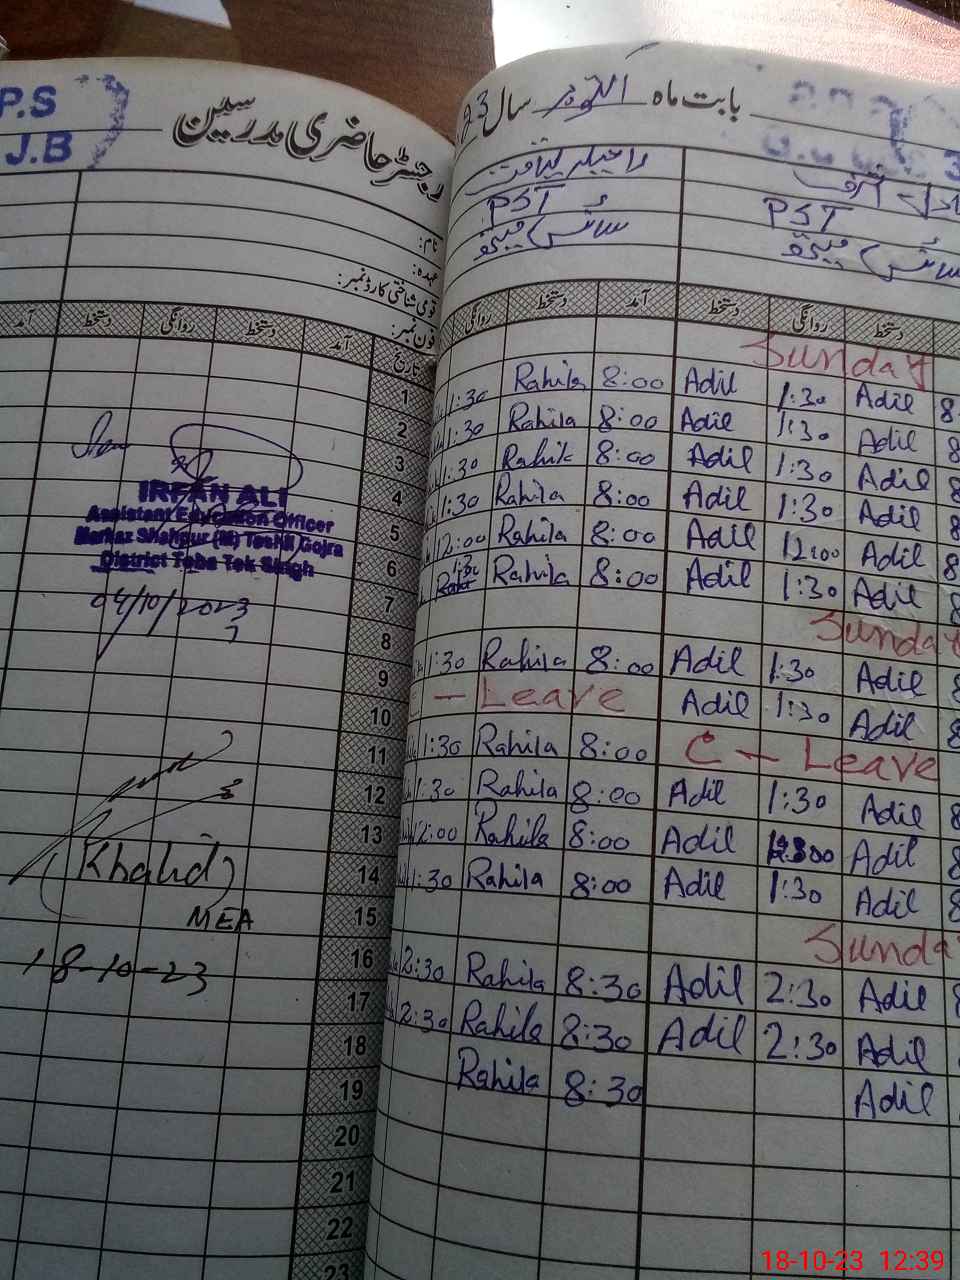 P.S
J.B
رجسٹر حاضری مدرسین
بابت ماہ اکتوبر سال 23
نام:
عہدہ:
قومی شناختی کارڈ نمبر:
فون نمبر:
PST
PST
سائنس میٹرک
سائنس میٹرک
آمد دستخط روانگی دستخط آمد تاریخ
روانگی دستخط آمد دستخط روانگی دستخط
Sunday
1
1:30 Rahila 8:00 Adil 1:30 Adil 8
2
1:30 Rahila 8:00 Adil 1:30 Adil 8
3
1:30 Rahila 8:00 Adil 1:30 Adil 8
4
1:30 Rahila 8:00 Adil 1:30 Adil 8
5
12:00 Rahila 8:00 Adil 12:00 Adil 8
6
1:30 Rahila 8:00 Adil 1:30 Adil 8
7
Sunday
8
1:30 Rahila 8:00 Adil 1:30 Adil 8
9
- Leave Adil 1:30 Adil 8
10
1:30 Rahila 8:00 C - Leave
11
1:30 Rahila 8:00 Adil 1:30 Adil 8
12
12:00 Rahila 8:00 Adil Adil 8
13
1:30 Rahila 8:00 Adil 1:30 Adil 8
14
Sunday
15
2:30 Rahila 8:30 Adil 2:30 Adil 8
16
2:30 Rahila 8:30 Adil 2:30 Adil
17
Rahila 8:30 Adil
18
19
20
21
22
23
IRFAN ALI
Assistant Education Officer
Markaz Shahpur (M) Tehsil Gojra
District Toba Tek Singh
04/10/2023
(Khalid)
MEA
18-10-23
18-10-23 12:39